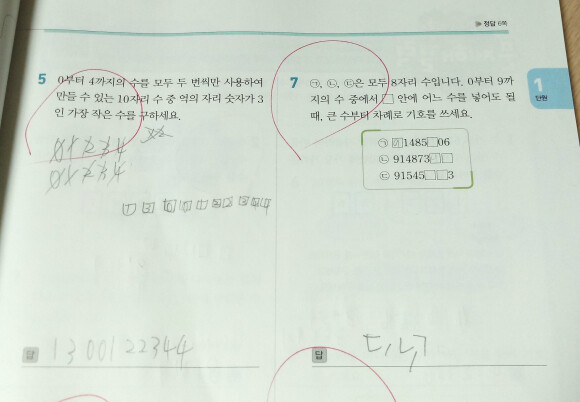 정답 6쪽
5 0부터 4까지의 수를 모두 두 번씩만 사용하여
만들 수 있는 10자리 수 중 억의 자리 숫자가 3
인 가장 작은 수를 구하세요.
0 1 2 3 4
0 1 2 3 4
1 3 0 0 1 2 2 3 4 4
답 1300122344
7 ㉠, ㉡, ㉢은 모두 8자리 수입니다. 0부터 9까
지의 수 중에서 □ 안에 어느 수를 넣어도 될
때, 큰 수부터 차례로 기호를 쓰세요.
㉠ □1485□06
㉡ 914873□□
㉢ 91545□□3
답 ㄷ, ㄴ, ㄱ
1
단원